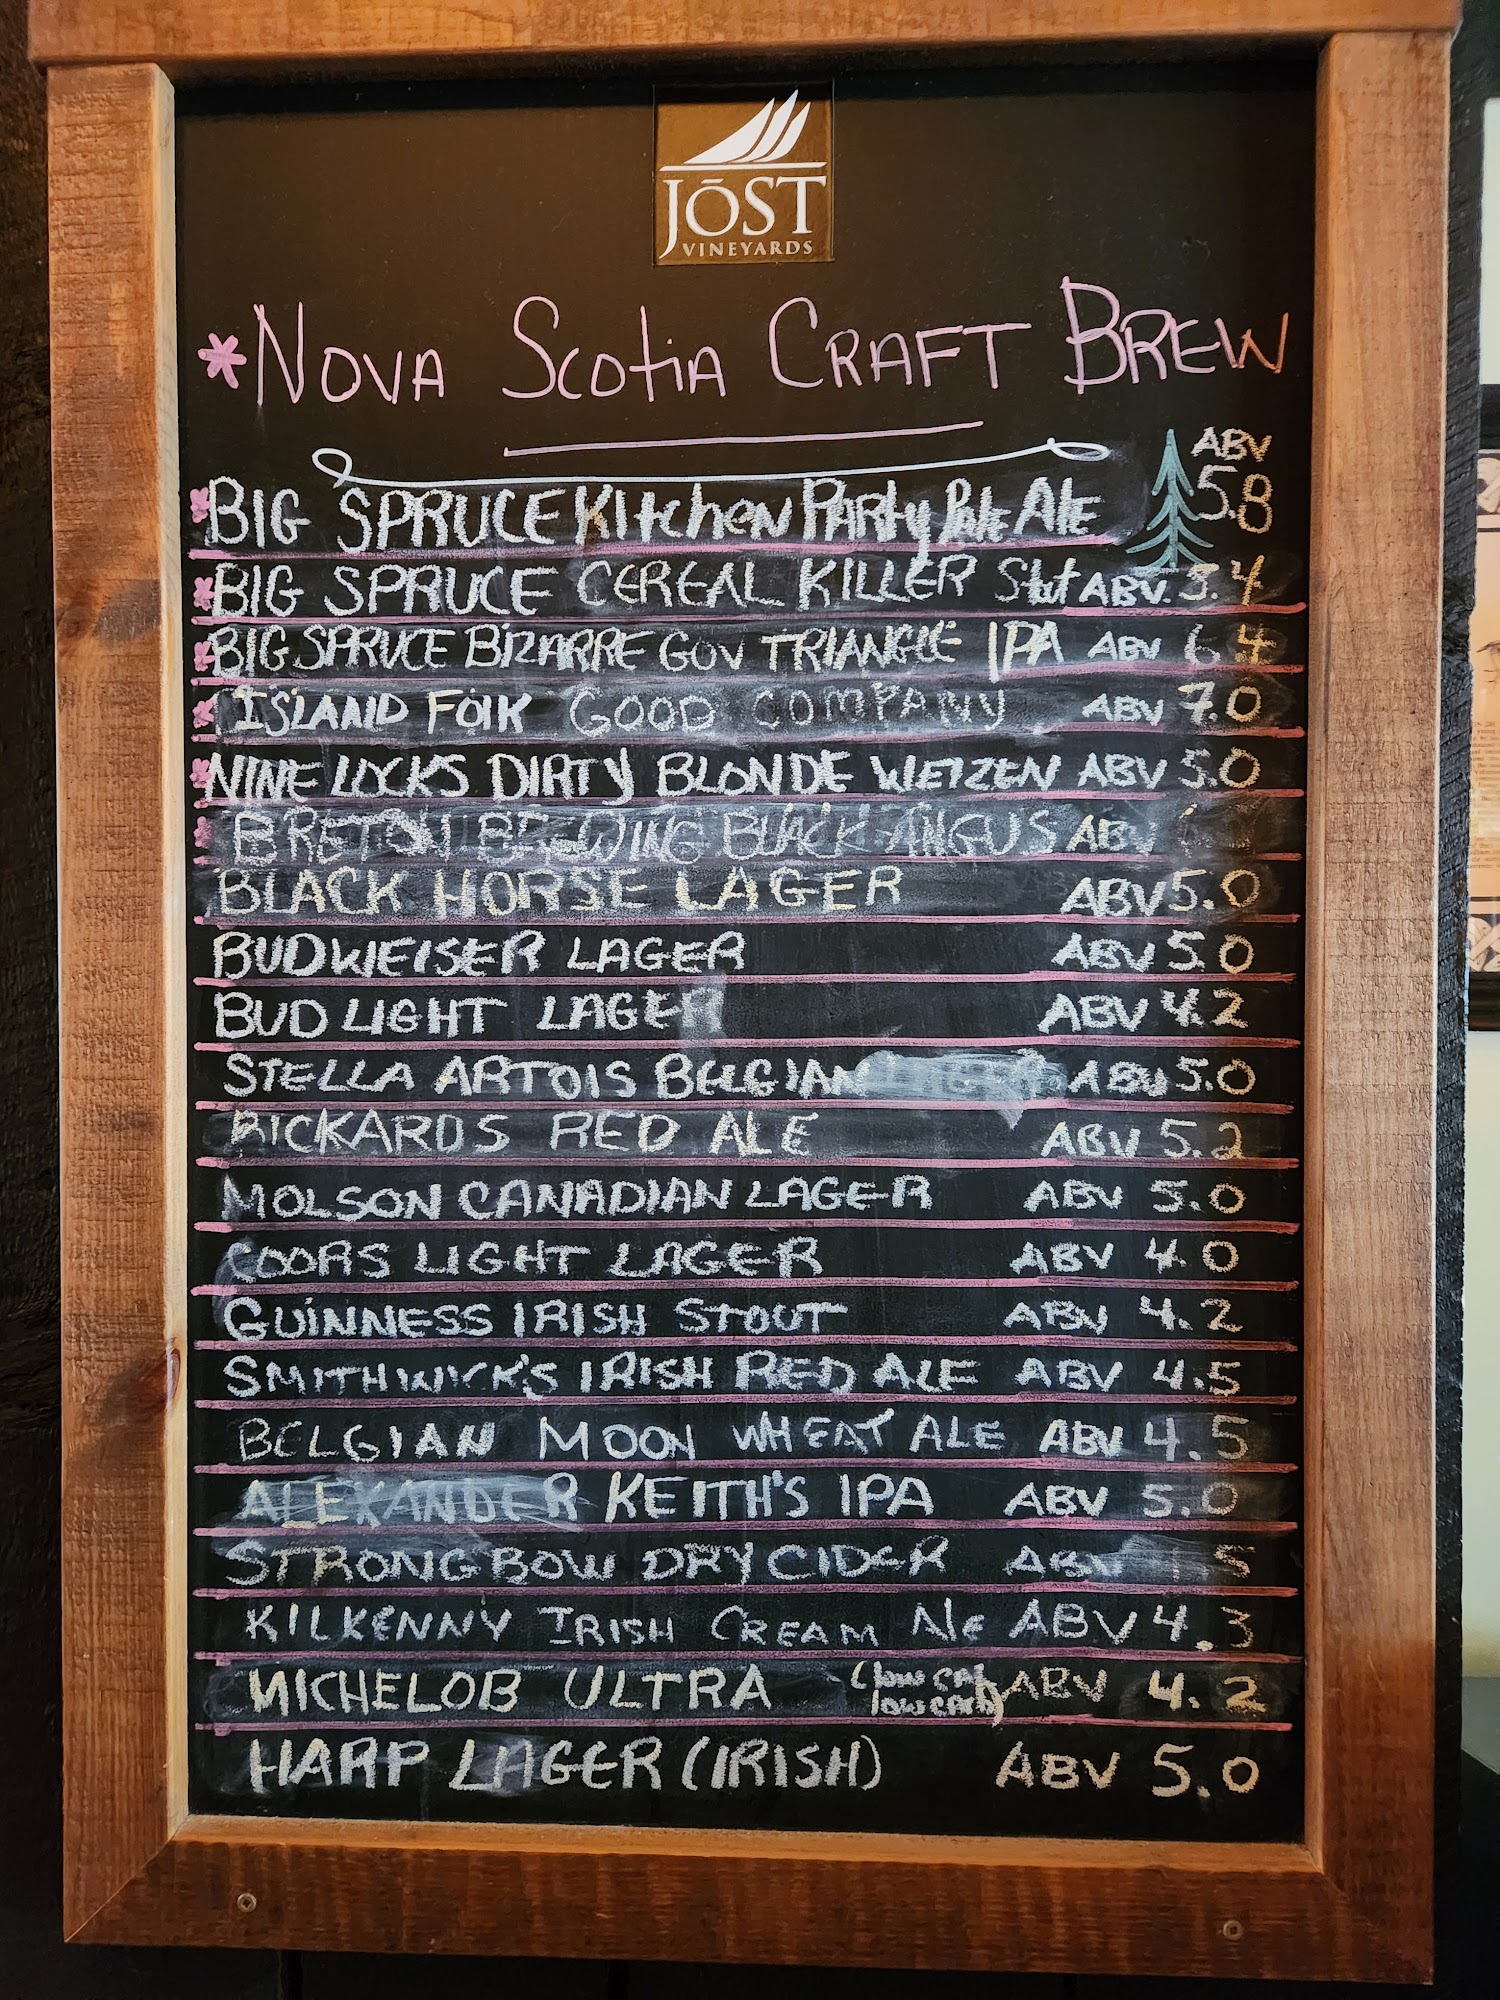 JŌST
VINEYARDS
*NOVA SCOTIA CRAFT BREW
ABV
*BIG SPRUCE KITCHEN PARTY PALE ALE 5.8
*BIG SPRUCE CEREAL KILLER Stout ABV. 5.4
*BIG SPRUCE BIZARRE GOV TRIANGLE IPA ABV 6.4
*ISLAND FOLK GOOD COMPANY ABV 7.0
*NINE LOCKS DIRTY BLONDE WEIZEN ABV 5.0
*BRETON BREWING BLACK ANGUS ABV
BLACK HORSE LAGER ABV 5.0
BUDWEISER LAGER ABV 5.0
BUD LIGHT LAGER ABV 4.2
STELLA ARTOIS BELGIAN ABV 5.0
RICKARDS RED ALE ABV 5.2
MOLSON CANADIAN LAGER ABV 5.0
COORS LIGHT LAGER ABV 4.0
GUINNESS IRISH STOUT ABV 4.2
SMITHWICK'S IRISH RED ALE ABV 4.5
BELGIAN MOON WHEAT ALE ABV 4.5
ALEXANDER KEITH'S IPA ABV 5.0
STRONGBOW DRY CIDER ABV
KILKENNY IRISH CREAM ALE ABV 4.3
MICHELOB ULTRA (low cal low carb) ABV 4.2
HARP LAGER (IRISH) ABV 5.0